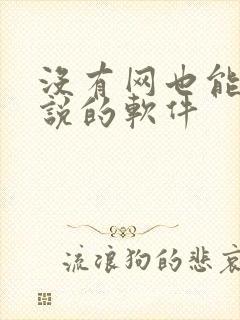 没有网也能
說的軟件
流浪狗的悲哀